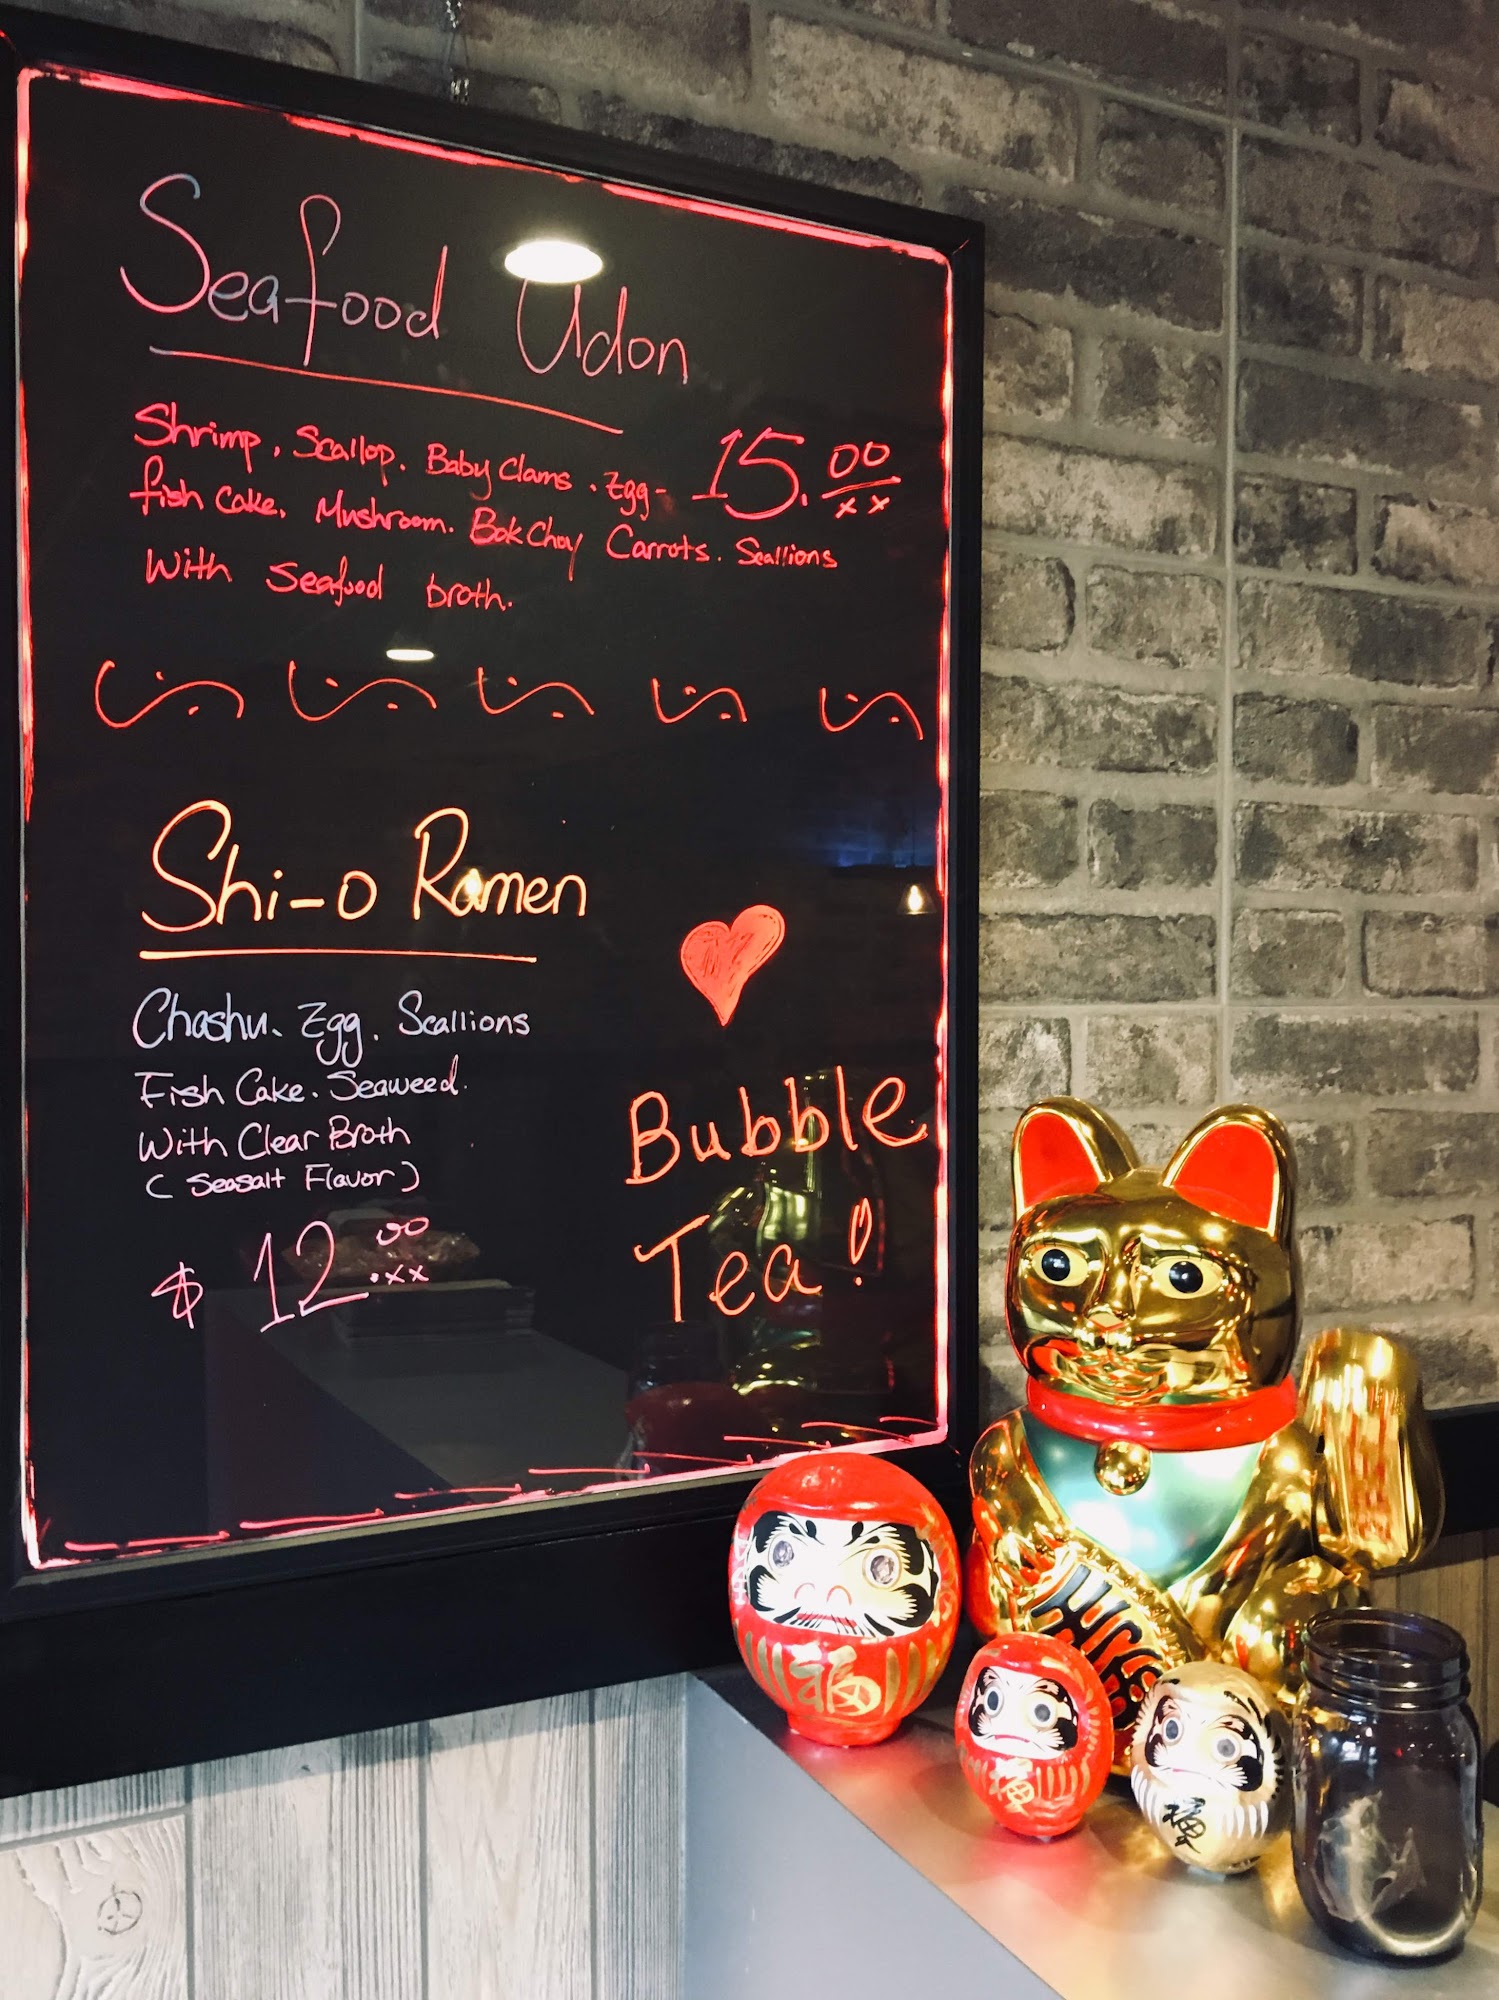 Seafood Udon
Shrimp, Scallop. Baby Clams. Egg- 15.00
xx
fish cake. Mushroom. Bok Choy Carrots. Scallions
With seafood broth.
Shi-o Ramen
Chashu. Egg. Scallions
Fish Cake. Seaweed.
With Clear Broth
(Seasalt Flavor)
$ 12.00
xx
Bubble
Tea!
福
福